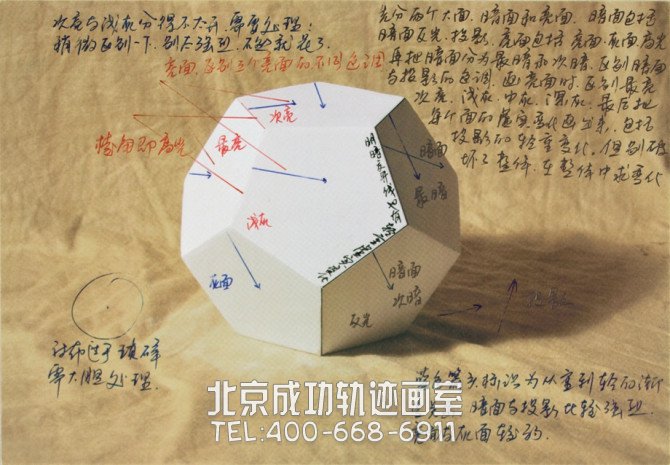 次亮与浅灰分得不太开，需要处理：
稍微区别一下，别太强烈，不然就花了
亮面，区别三个亮面的不同色调
先分两个大面，暗面和亮面，暗面包括
暗面反光，投影，亮面包括亮面、灰面、高光
再把暗面分为最暗和次暗，区别暗面
与投影的色调，画亮面时，区别最亮
次亮，浅灰，中灰，深灰，最后把
每个面的虚实变化画出来，包括
投影的轻重变化，但别破
坏了整体，在整体中求变化
次亮
棱角即高光
最亮
浅灰
明暗交界线
暗面
最暗
灰面
暗面
次暗
反光
投影
衬布过于琐碎
需大胆处理.
蓝色箭头标识为从重到轻的渐
暗面与投影比较强烈
灰面较弱.
北京成功轨迹画室
TEL:400-668-6911